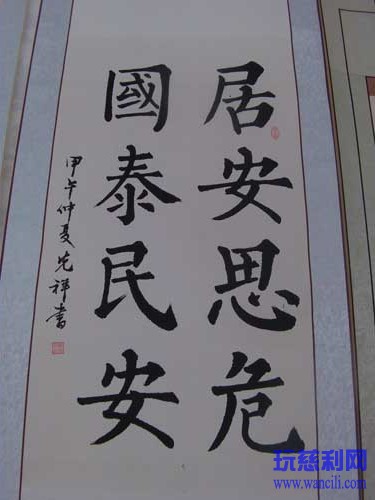 居安思危
國泰民安
甲午仲夏先祥書
玩慈利网
www.wancili.com